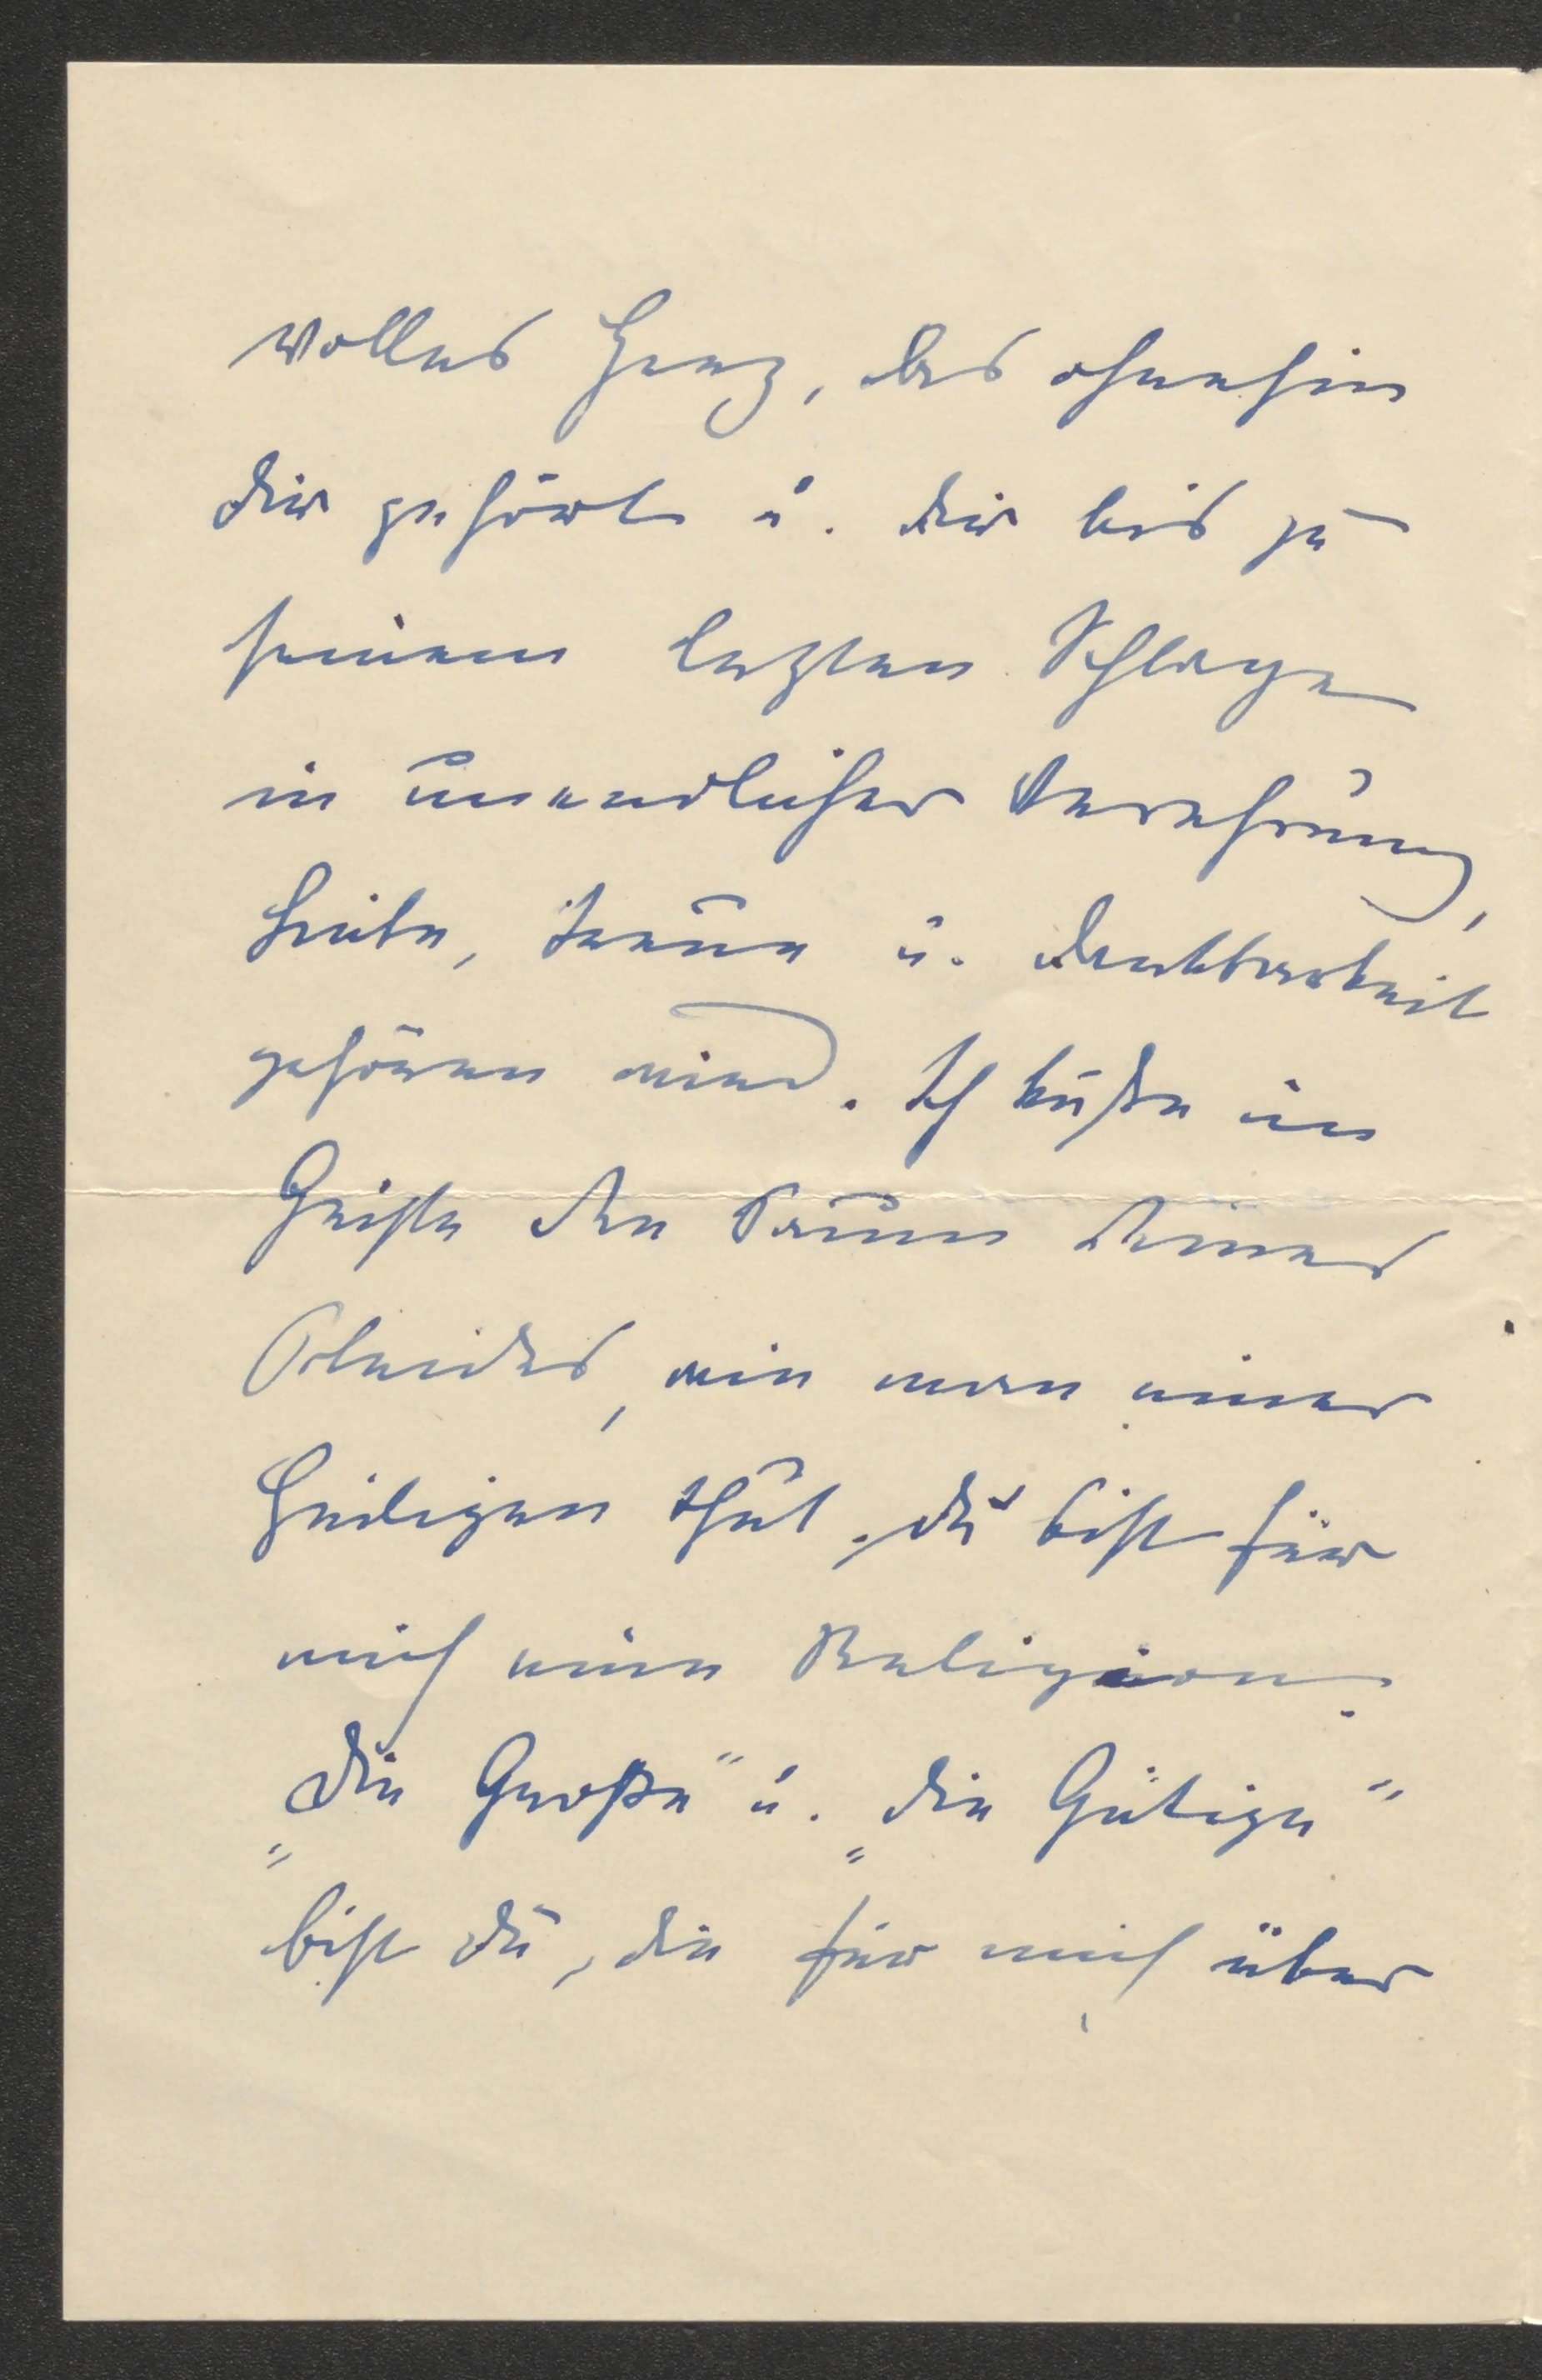 volles Herz, das ohnehin
dir gehört u. dir bis zu
seinem letzten Schlage
in unendlicher Verehrung,
Liebe, Treue u. Dankbarkeit
gehören wird. Ich küße im
Geiste den Saum deines
Kleides, wie man einer
Heiligen thut, du bist für
mich eine Religion.
„Die Große" u. „die Gütige"
bist du, die für mich über